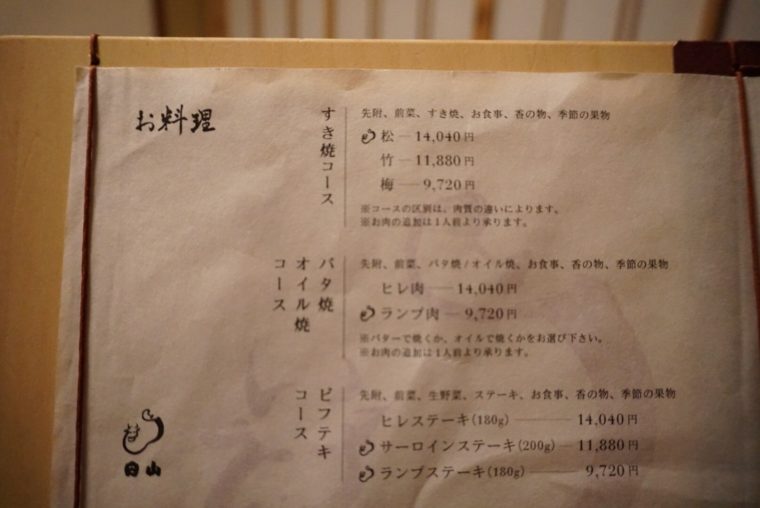 お料理
すき焼コース
先附、前菜、すき焼、お食事、香の物、季節の果物
松 — 14,040円
竹 — 11,880円
梅 — 9,720円
※コースの区別は、肉質の違いによります。
※お肉の追加は1人前より承ります。
バタ焼
オイル焼
コース
先附、前菜、バタ焼/オイル焼、お食事、香の物、季節の果物
ヒレ肉 — 14,040円
ランプ肉 — 9,720円
※バターで焼くか、オイルで焼くかをお選び下さい。
※お肉の追加は1人前より承ります。
ビフテキ
コース
先附、前菜、生野菜、ステーキ、お食事、香の物、季節の果物
ヒレステーキ(180g) — 14,040円
サーロインステーキ(200g) — 11,880円
ランプステーキ(180g) — 9,720円
日山